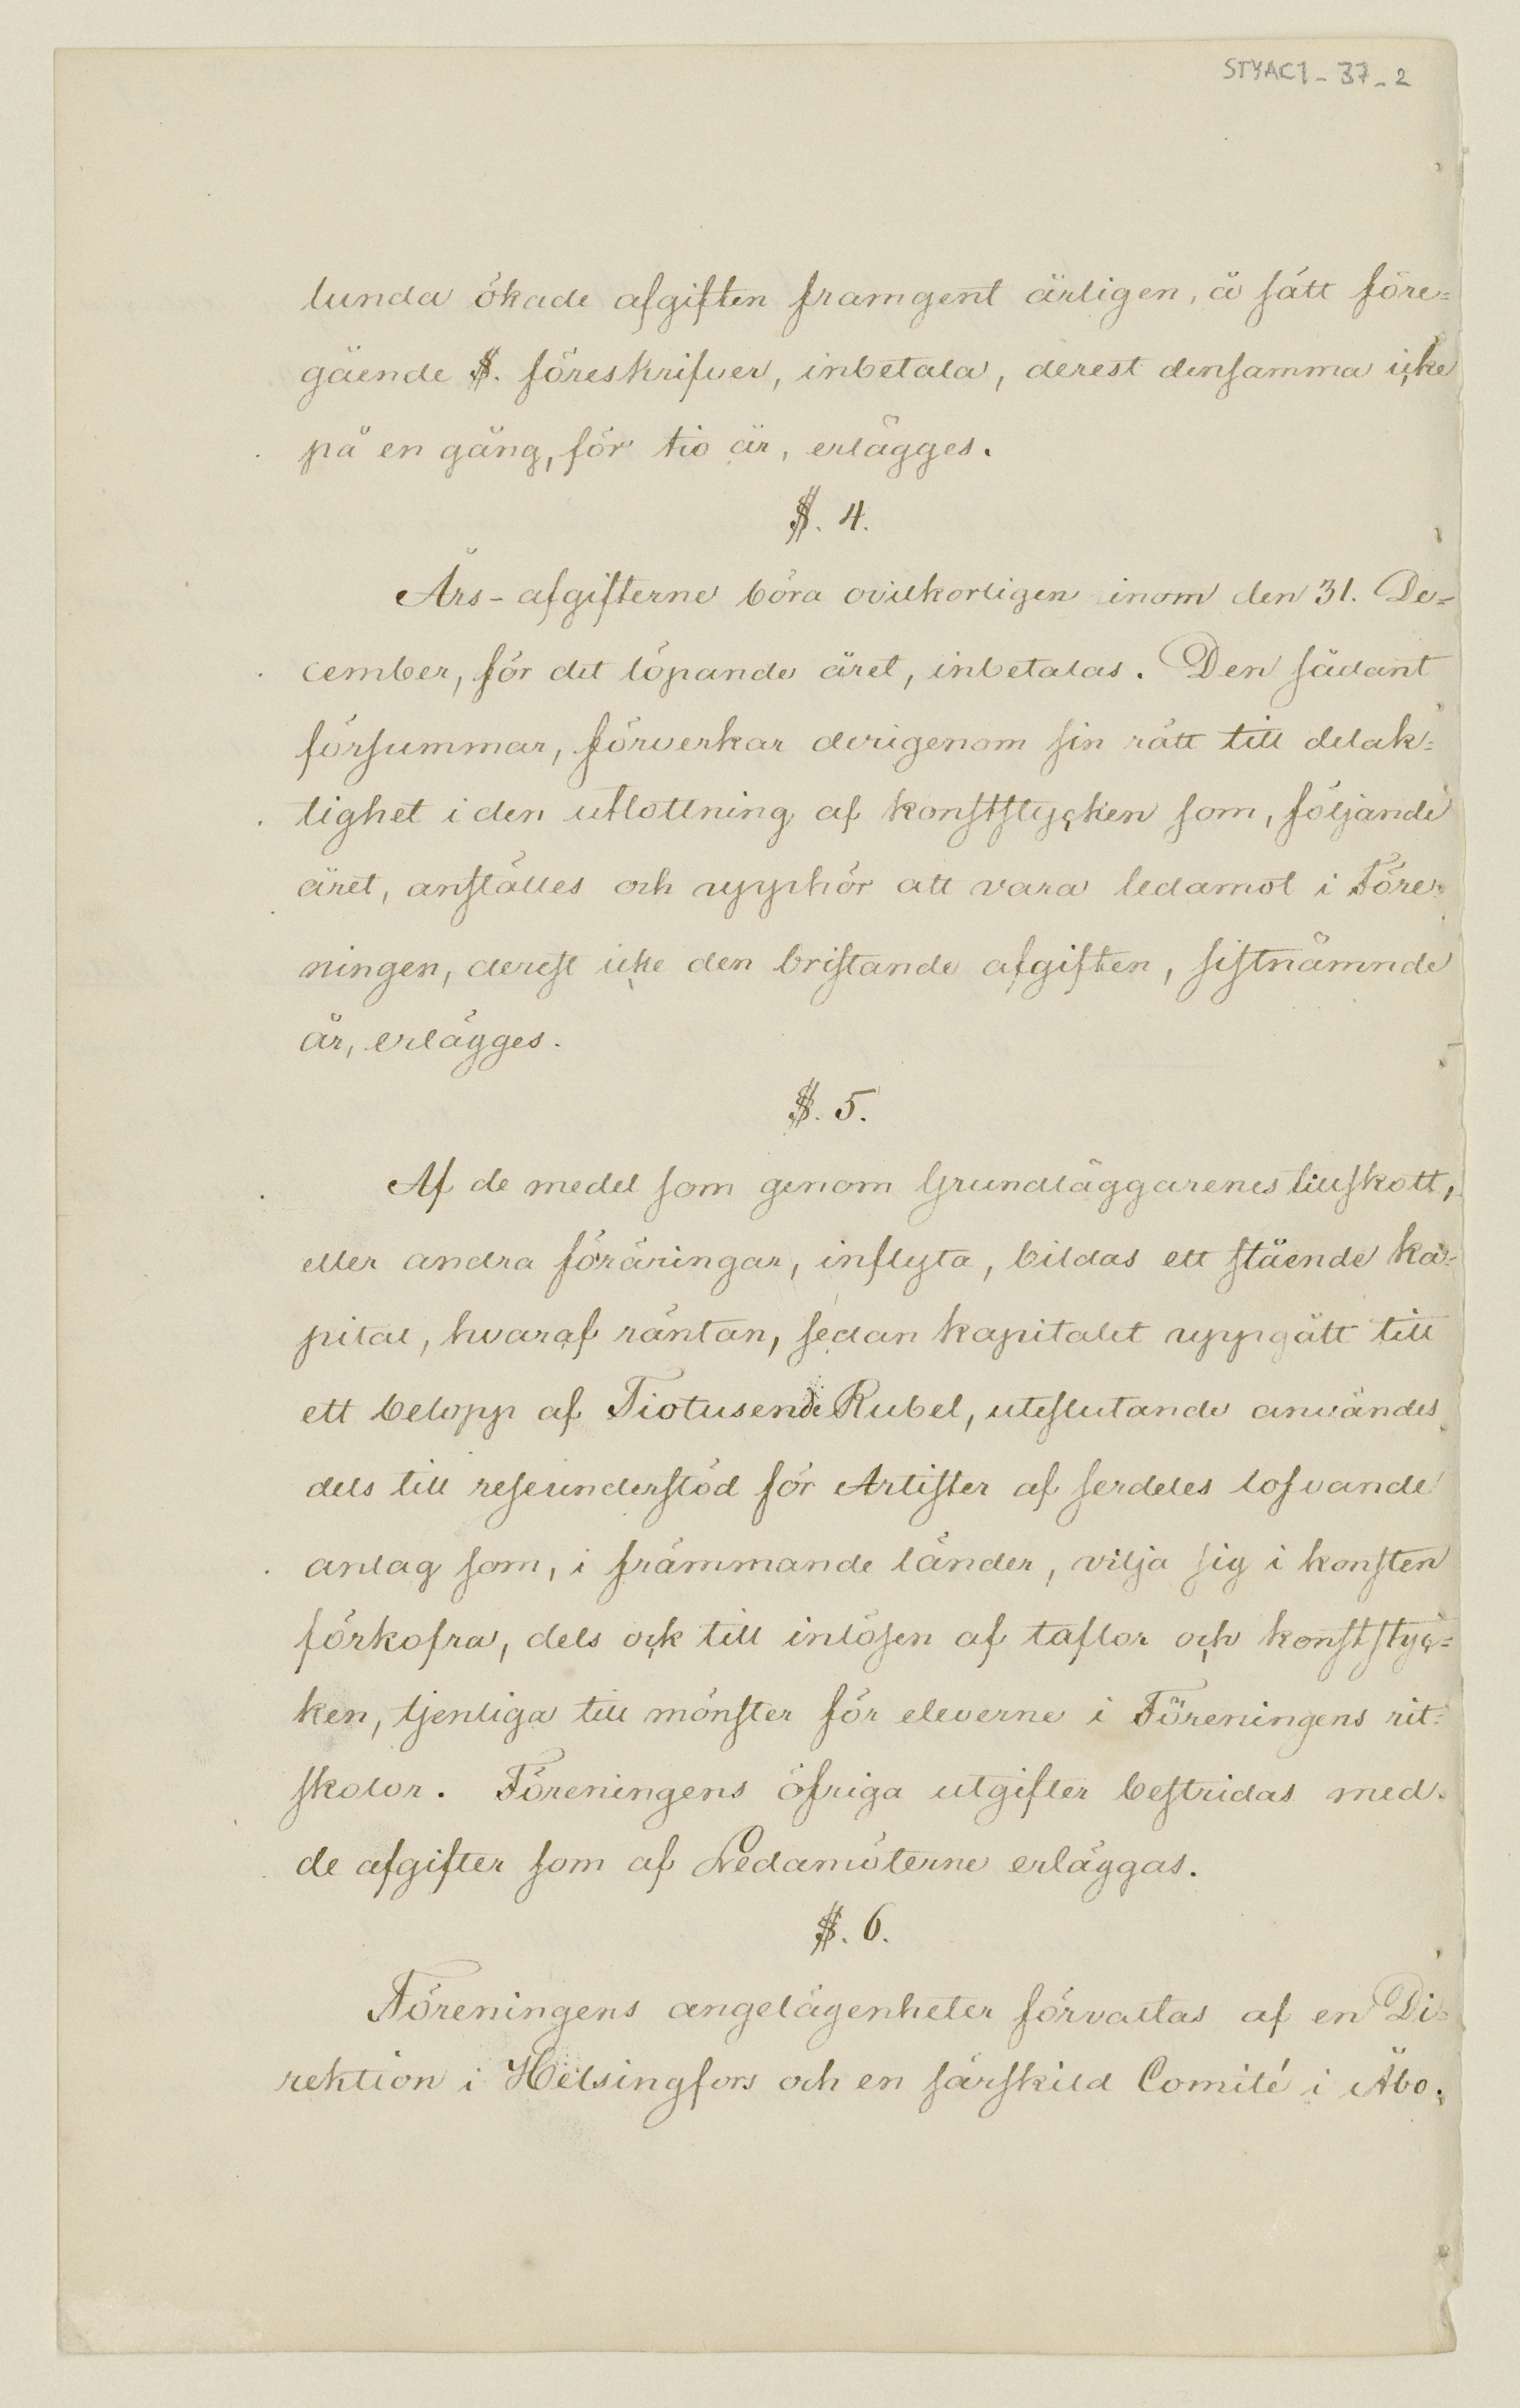 STYAC1_37_2
lunda ökade afgiften framgent årligen, å sätt före=
gående §. föreskrifver, inbetala, derest densamma icke
på en gång, för tio år, erlägges.
§. 4.
Års-afgifterne böra ovilkorligen inom den 31. De=
cember, för det löpande året, inbetalas. Den sådant
försummar, förverkar derigenom sin rätt till delak=
tighet i den utlottning af konststycken som, följande
året, anställes och upphör att vara ledamot i Före=
ningen, derest icke den bristande afgiften, sistnämnde
år, erlägges.
§. 5.
Af de medel som genom Grundläggarenes tillskott,
eller andra föräringar, inflyta, bildas ett stående ka=
pital, hvaraf räntan, sedan kapitalet uppgått till
ett belopp af Tiotusende Rubel, uteslutande användes
dels till reseunderstöd för Artister af serdeles lofvande
anlag som, i främmande länder, vilja sig i konsten
förkofra, dels ock till inlösen af taflor och konststyc=
ken, tjenliga till mönster för eleverne i Föreningens rit=
skolor. Föreningens öfriga utgifter bestridas med
de afgifter som af Ledamöterne erläggas.
§. 6.
Föreningens angelägenheter förvaltas af en Di=
rektion i Helsingfors och en särskild Comité i Åbo.